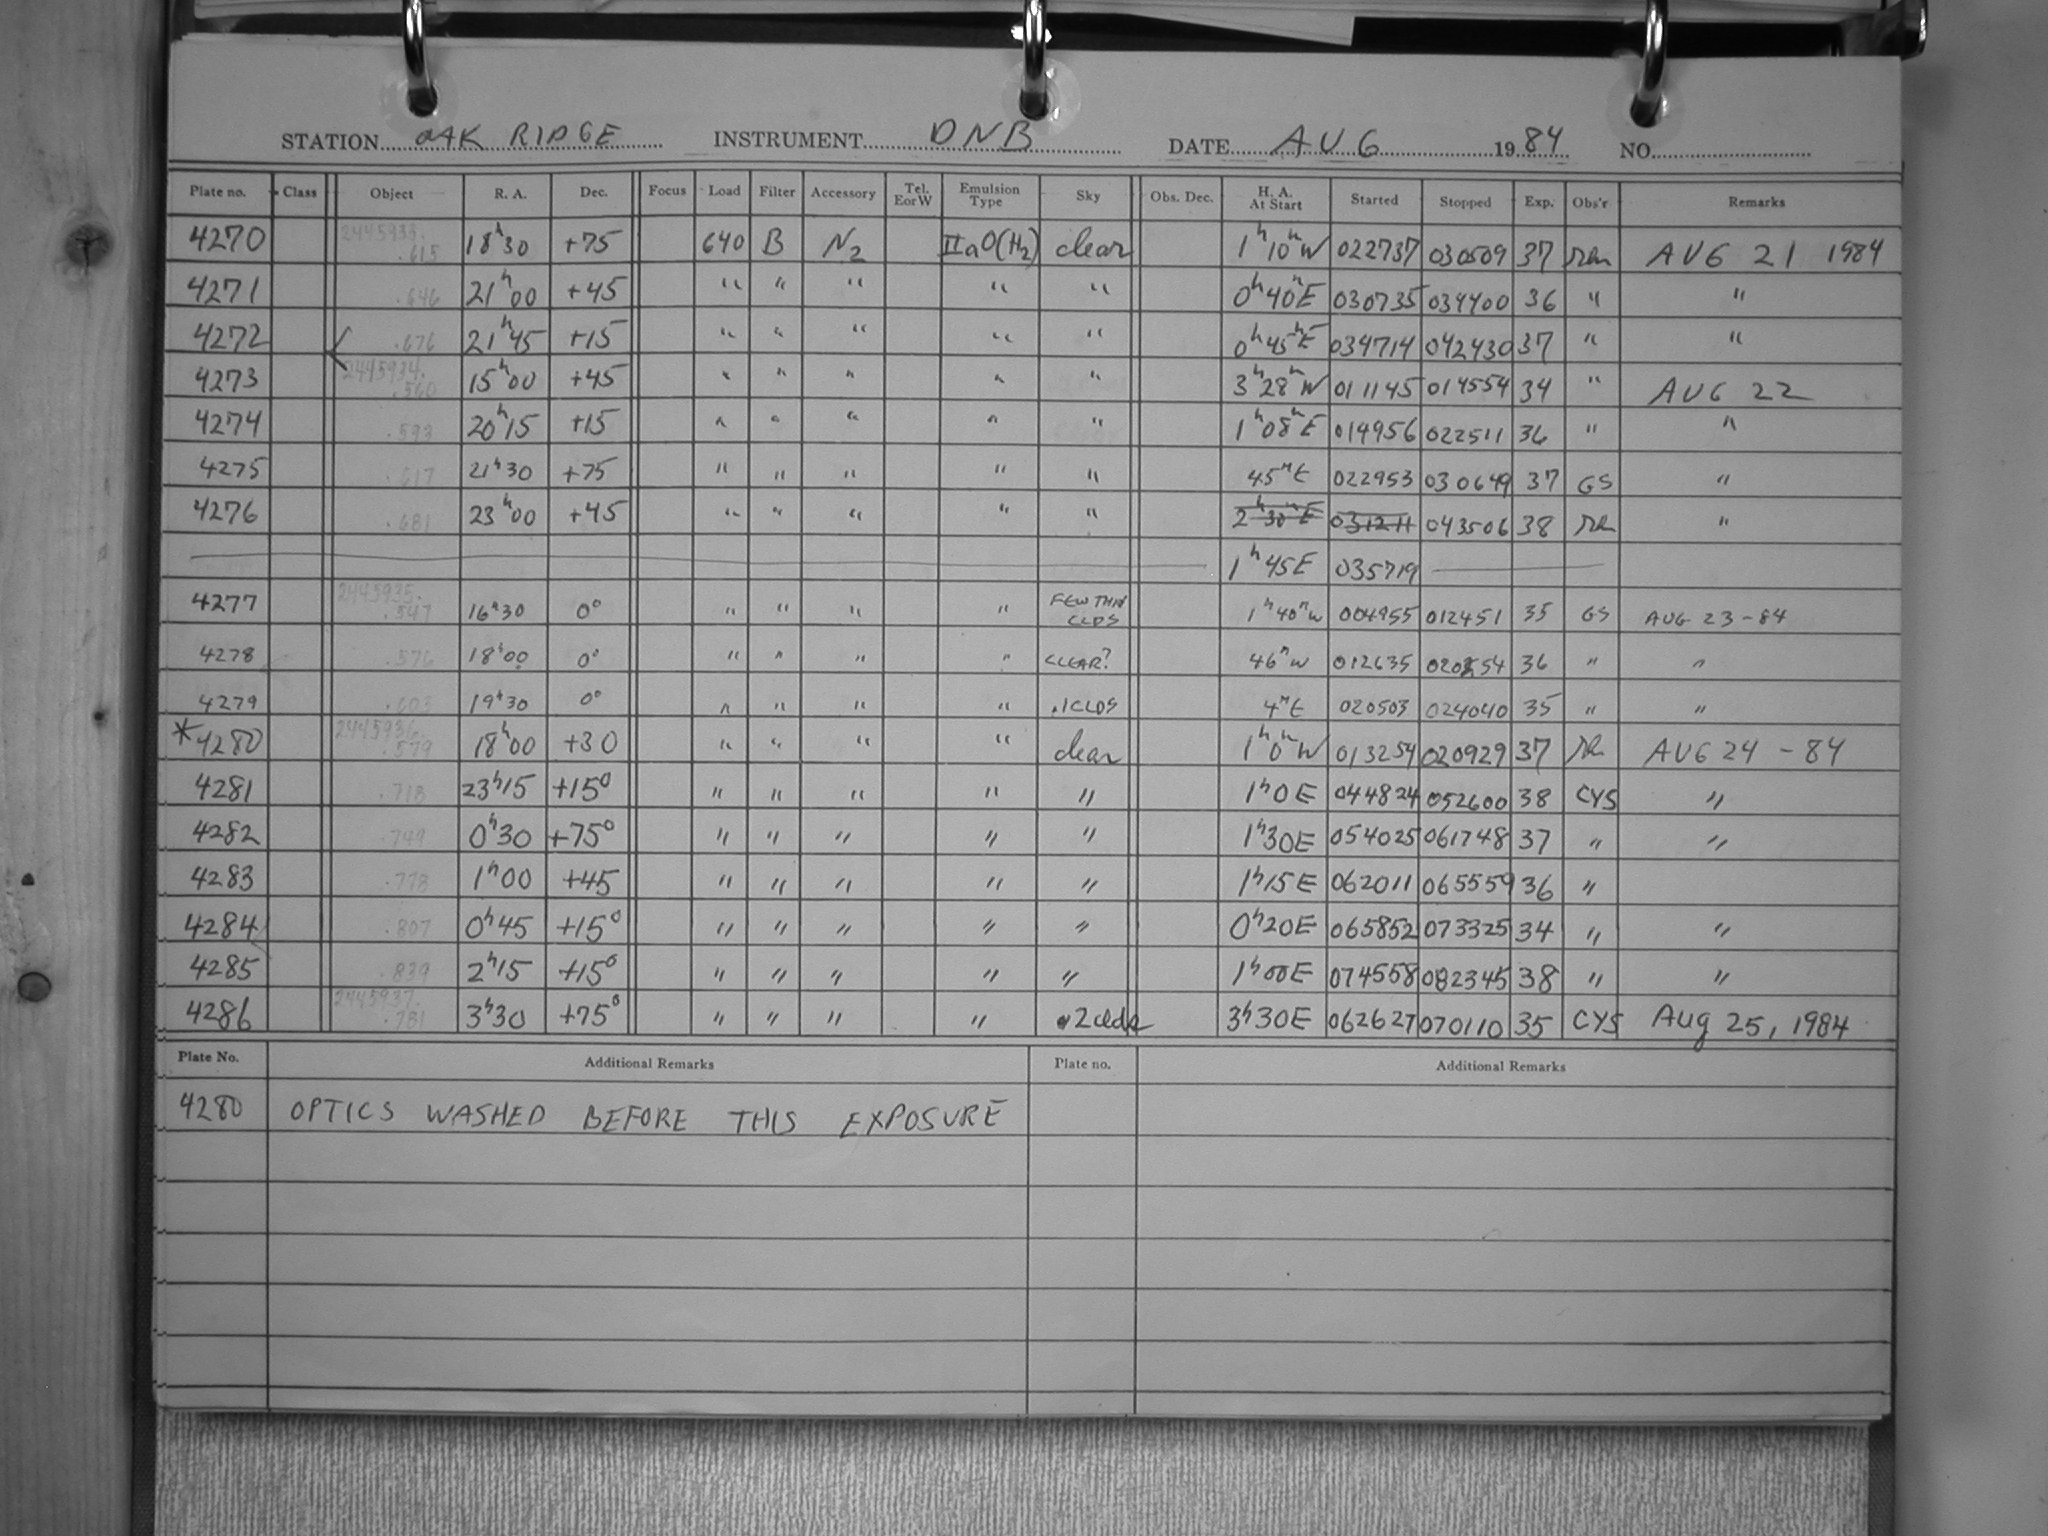 STATION OAK RIDGE INSTRUMENT DNB DATE AUG 1984 NO.
Plate no. Class Object R. A. Dec. Focus Load Filter Accessory Tel. E or W Emulsion Type Sky Obs. Dec. H. A. At Start Started Stopped Exp. Obs'r Remarks
4270 2445933.615 18h30 +75 640 B N2 IIaO(H2) clear 1h10mW 022737 030509 37 AUG 21 1984
4271 .646 21h00 +45 " " " " " 0h40mE 030735 034400 36 " "
4272 .676 21h45 +15 " " " " " 0h45mE 034714 042430 37 " "
4273 2445934.560 15h00 +45 " " " " " 3h28mW 011145 014554 34 " AUG 22
4274 .593 20h15 +15 " " " " " 1h08mE 014956 022511 36 " "
4275 .617 21h30 +75 " " " " " 45mE 022953 030649 37 GS "
4276 .681 23h00 +45 " " " " " 2h30mE 031211 043506 38 "
1h45E 035719
4277 2445935.547 16h30 0° " " " " FEW THIN CLDS 1h40mW 004955 012451 35 GS AUG 23-84
4278 .576 18h00 0° " " " " CLEAR? 46mW 012635 020254 36 " "
4279 .603 19h30 0° " " " " .1CLDS 4mE 020503 024040 35 " "
*4280 2445936.579 18h00 +30 " " " " clear 1h0mW 013254 020929 37 AUG 24 - 84
4281 .718 23h15 +15° " " " " " 1h0E 044824 052600 38 CYS "
4282 .749 0h30 +75° " " " " " 1h30E 054025 061748 37 " "
4283 .778 1h00 +45 " " " " " 1h15E 062011 065559 36 "
4284 .807 0h45 +15° " " " " " 0h20E 065852 073325 34 " "
4285 .839 2h15 +15° " " " " " 1h00E 074558 082345 38 " "
4286 2445937.781 3h30 +75° " " " " 3h30E 062627 070110 35 CYS Aug 25, 1984
Plate No. Additional Remarks Plate no. Additional Remarks
4280 OPTICS WASHED BEFORE THIS EXPOSURE